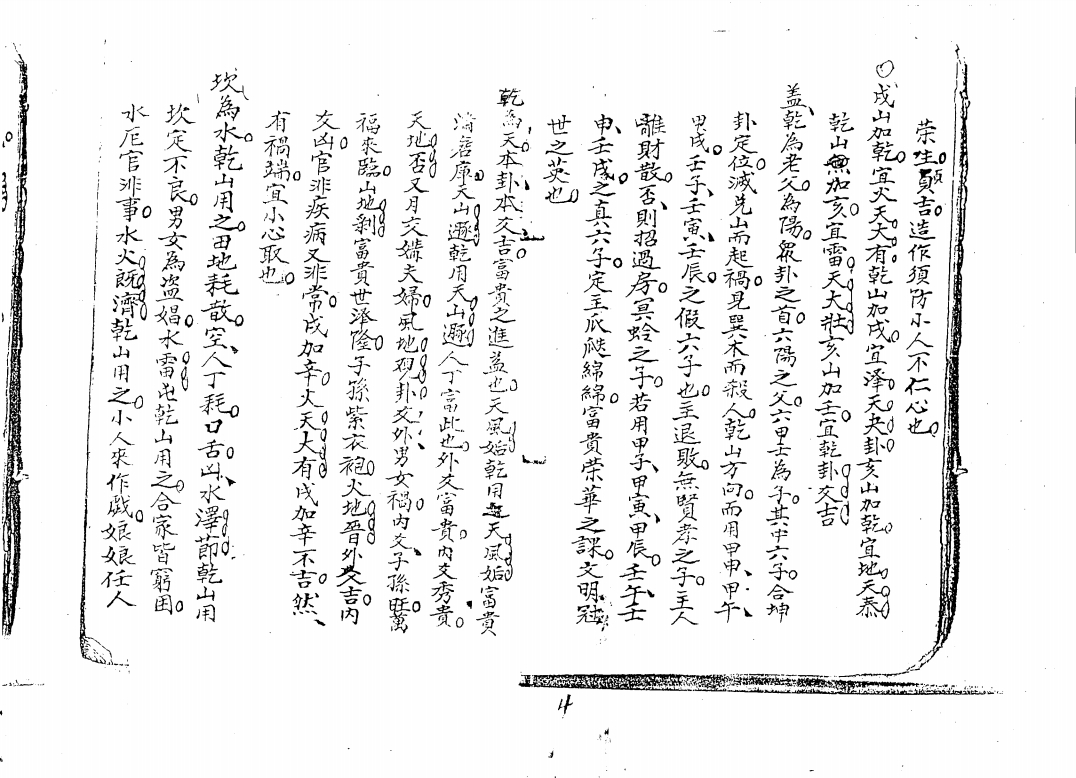 榮生員吉造作須防小人不仁心也
○戌山加乾宜火天大有乾山加戌宜泽天夬卦亥山加乾宜地天泰
乾山無加亥宜雷天大壯亥山加壬宜乾卦爻吉
盖乾為老父為陽眾卦之首六陽之父六甲壬為子其中六子合坤
卦定位滅兑山而起禍見巽木而殺人乾山方向而用甲申甲午
甲戌壬子壬寅壬辰之假六子也主退敗無賢孝之子主人
離財散否則招過房冥蛉之子若用甲子甲寅甲辰壬午壬
申壬戌之真六子定主瓜瓞綿綿富貴荣華之課文明冠
世之英也
乾為天本卦本爻吉富貴之進益也天風姤乾用天風姤富貴
滿倉庫天山遯乾用天山遯人丁富此也外爻富貴内爻秀貴
天地否又月交媾夫婦風地观卦爻外男女禍内爻子孫旺萬
福來臨山地剥富貴世澤隆子孫紫衣袍火地晉外爻吉内
爻凶官非疾病又非常戌加辛火天大有戌加辛不吉然
有禍端宜小心取也
坎為水乾山用之田地耗散空人丁耗口舌凶水澤節乾山用
坎定不良男女為盜娼水雷屯乾山用之合家皆窮困
水厄官非事水火既濟乾山用之小人來作戯娘娘任人
4